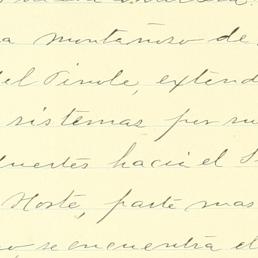 a montañoso de
del Pinole, extend
sistemas por su
uertes hacia el S
Norte, parte mas
o, se encuentra el